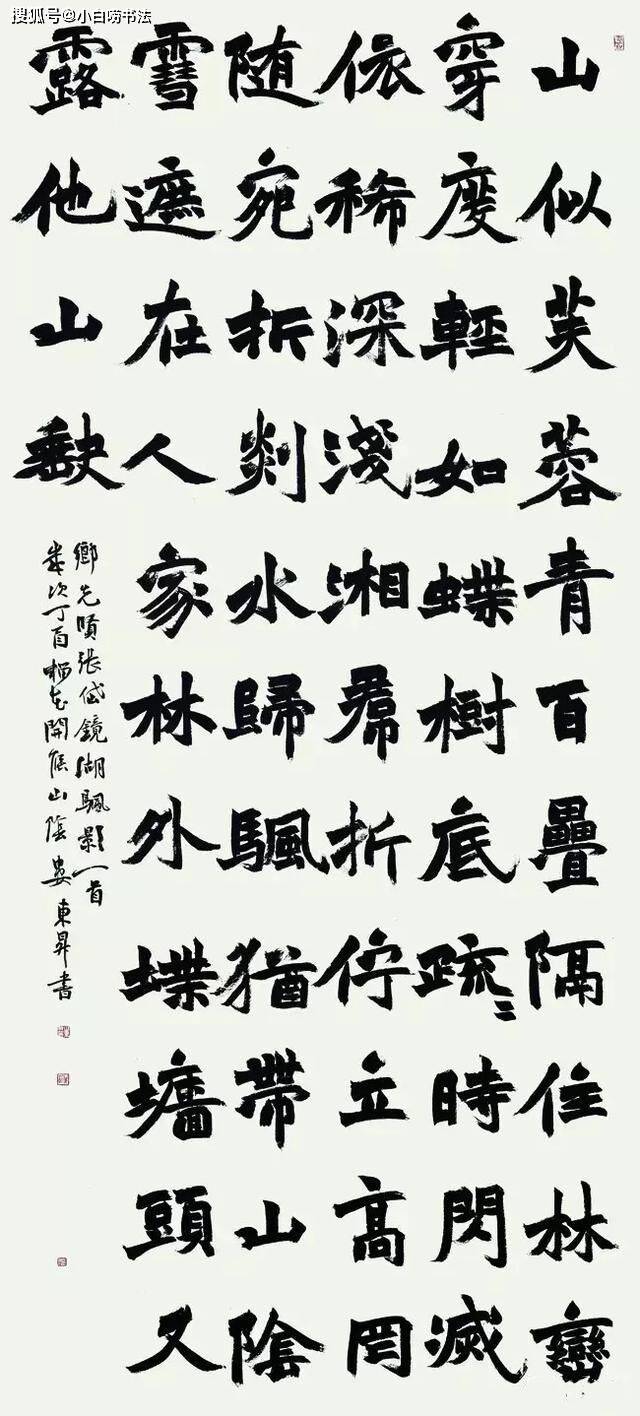 搜狐号@小白唠书法
山似芙蓉青百疊隔住林巒
穿度輕如蝶樹底疏〻時閃滅
依稀深淺湘帬折佇立高岡
随宛折剡水歸颿猶帶山陰
雪遮在人家林外堞墻頭又
露他山缺
鄉先賢張岱鏡湖颿影一首
歲次丁酉花開候山陰婁東昇書